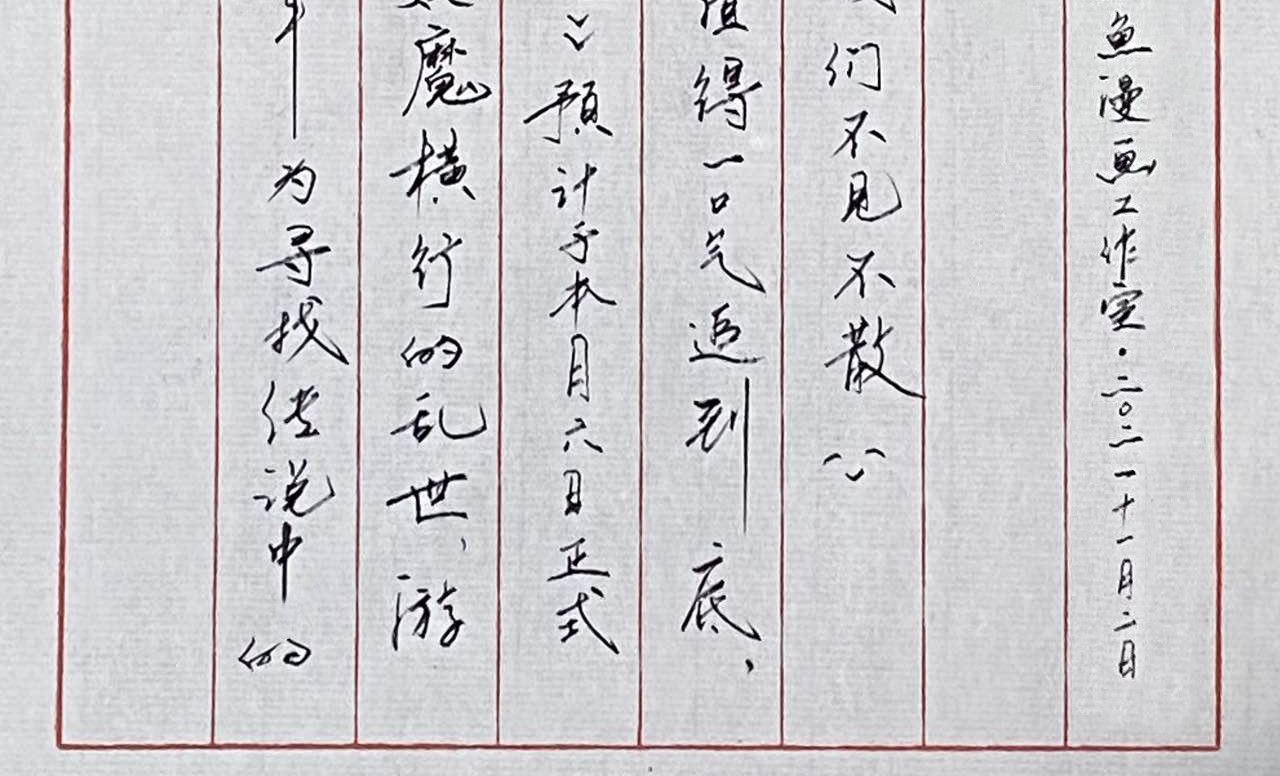 为寻找传说中的
魔横行的乱世，游
》预计于本月六日正式
值得一口气追到底，
们不见不散
鱼漫画工作室·二〇二一十一月二日